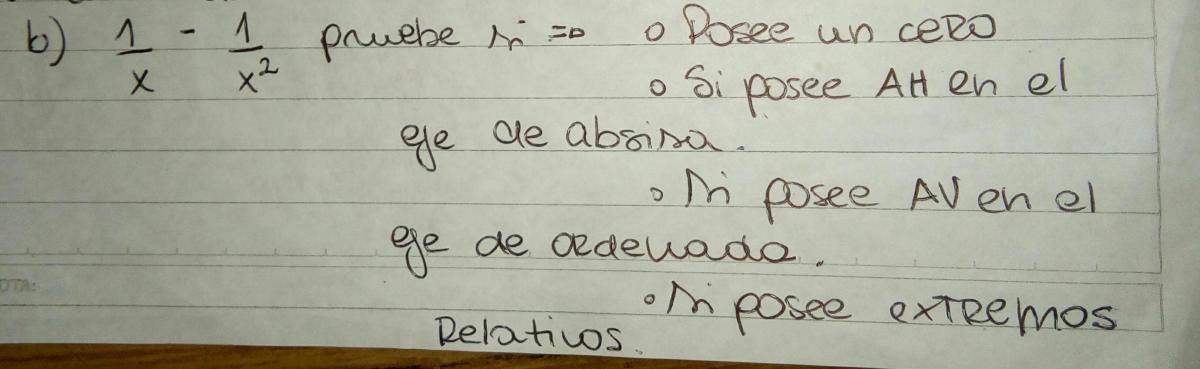 b) 1/x - 1/x² pruebe si => o Posee un cero
o Si posee AH en el
eje de absisa.
o si posee AV en el
eje de ordenada.
OTA:
o si posee extremos
Relativos.